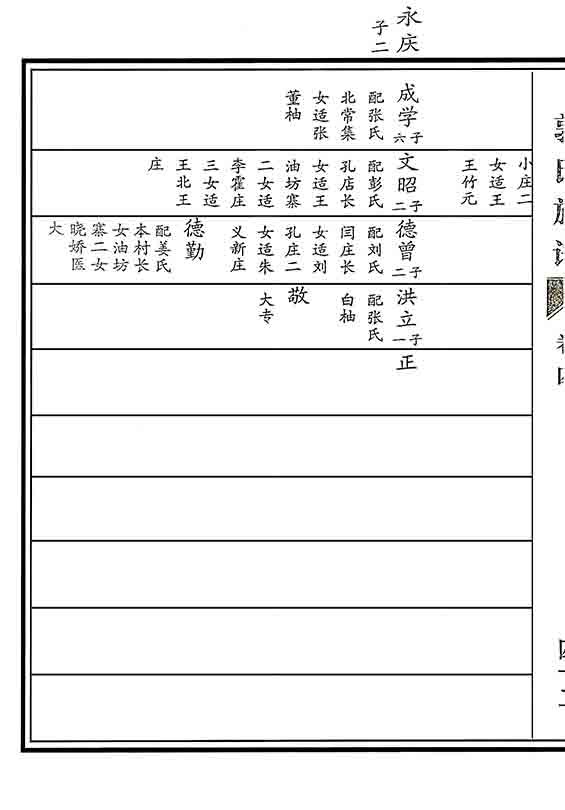 永庆
子二
成学子六
配张氏
北常集
女适张
董柚
小庄二
女适王
王竹元
文昭子二
配彭氏
孔店长
女适王
油坊寨
二女适
李霍庄
三女适
王北王
庄
德曾子二
配刘氏
闫庄长
女适刘
孔庄二
女适朱
义新庄
德勤
配姜氏
本村长
女油坊
寨二女
晓娇医
大
洪立子一
配张氏
白柚
敬
大专
正